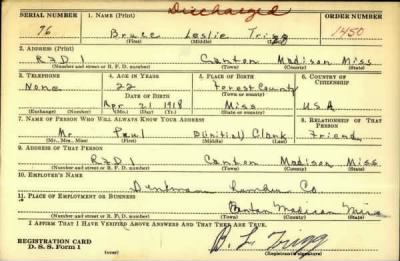 Discharged
SERIAL NUMBER 1. NAME (Print) ORDER NUMBER
76 Bruce Leslie Trigg 1450
(First) (Middle) (Last)
2. ADDRESS (Print)
RFD 1 Canton Madison Miss
(Number and street or R. F. D. number) (Town) (County) (State)
3. TELEPHONE 4. AGE IN YEARS 5. PLACE OF BIRTH 6. COUNTRY OF CITIZENSHIP
None 22 Forest County
DATE OF BIRTH (Town or county)
Apr 21 1918 Miss USA
(Exchange) (Number) (Mo.) (Day) (Yr.) (State or country)
7. NAME OF PERSON WHO WILL ALWAYS KNOW YOUR ADDRESS 8. RELATIONSHIP OF THAT PERSON
Mr Paul (Initial) Clark Friend
(Mr., Mrs., Miss) (First) (Middle) (Last)
9. ADDRESS OF THAT PERSON
RFD 1 Canton Madison Miss
(Number and street or R. F. D. number) (Town) (County) (State)
10. EMPLOYER'S NAME
Co
11. PLACE OF EMPLOYMENT OR BUSINESS
Canton Madison Miss
(Number and street or R. F. D. number) (Town) (County) (State)
I AFFIRM THAT I HAVE VERIFIED ABOVE ANSWERS AND THAT THEY ARE TRUE.
REGISTRATION CARD
D. S. S. Form 1
B. L. Trigg
(Registrant's signature)